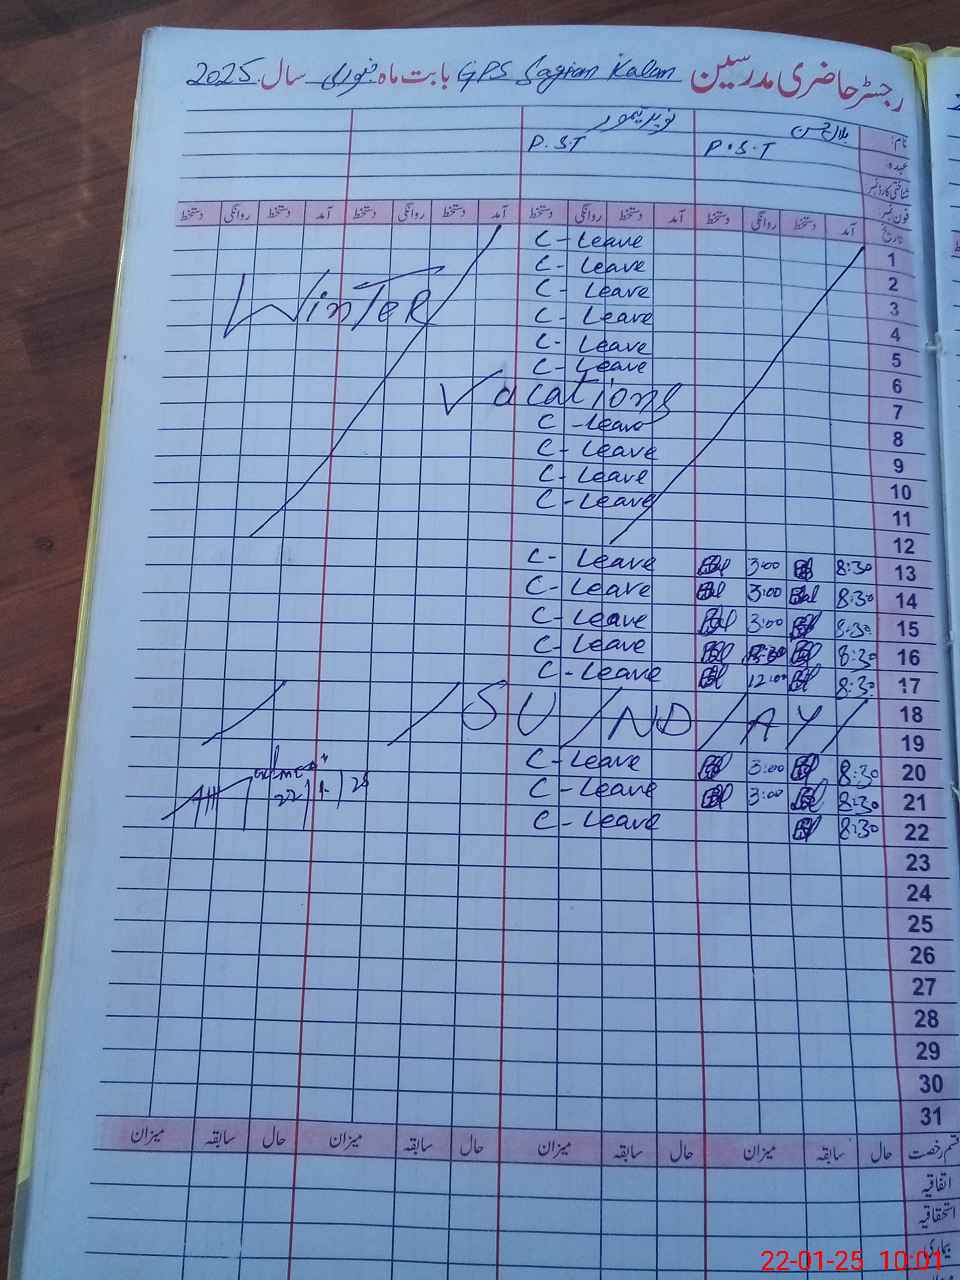 رجسٹر حاضری مدرسین GPS Sagram Kalan بابت ماہ جنوری سال 2025
نام:
عہدہ: P.S.T P.S.T
شناختی کارڈ نمبر
فون نمبر
تاریخ آمد دستخط روانگی دستخط آمد دستخط روانگی دستخط آمد دستخط روانگی دستخط آمد دستخط روانگی دستخط
C-Leave
1 C-Leave
2 C-Leave
3 C-Leave
WinTeR
4 C-Leave
5 C-Leave
6 Vacations
7 C-Leave
8 C-Leave
9 C-Leave
10 C-Leave
11
12
13 8:30 3:00 C-Leave
14 8:30 3:00 C-Leave
15 8:30 3:00 C-Leave
16 8:30 C-Leave
17 8:30 12:00 C-Leave
18 SU/ND/AY
19
20 8:30 3:00 C-Leave
21 8:30 3:00 C-Leave
22 8:30 C-Leave
22/1/25
23
24
25
26
27
28
29
30
31
قسم رخصت حال سابقہ میزان حال سابقہ میزان حال سابقہ میزان حال سابقہ میزان
اتفاقیہ
استحقاقیہ
بیماری
22-01-25 10:01